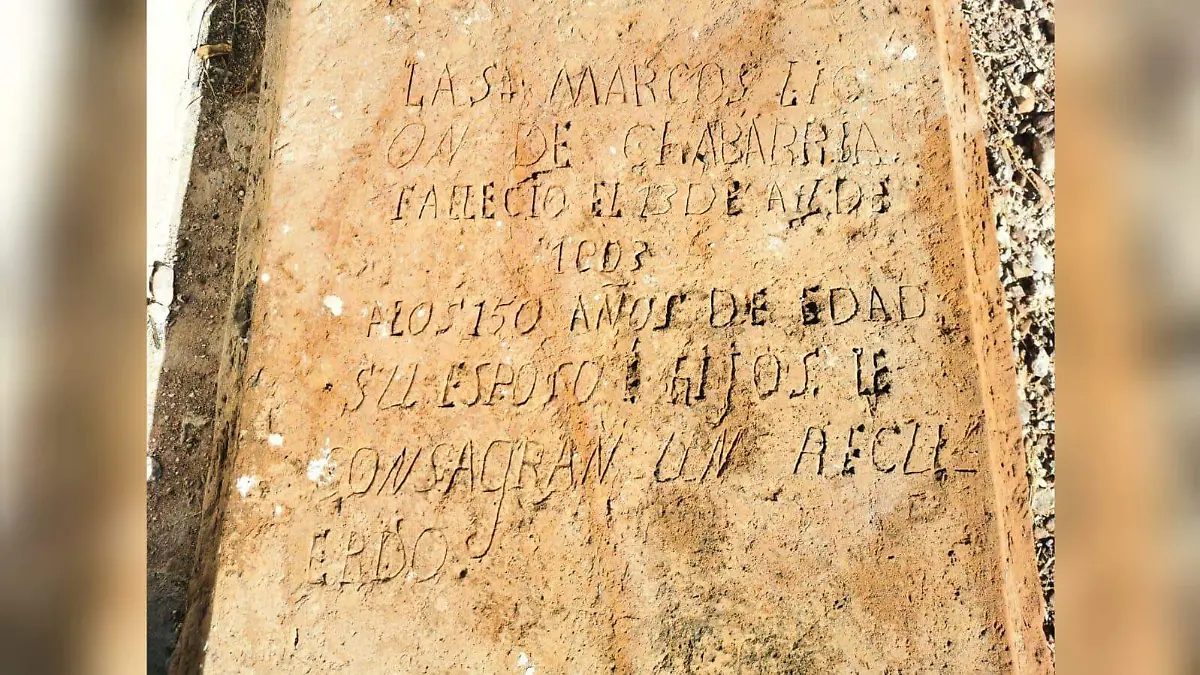 LA SA MARCOS LIC
ON DE CHABARRIA.
FALLECIO EL 13 DE AI DE
1803
A LOS 150 AÑOS DE EDAD
SU ESPOSO E HIJOS LE
CONSAGRAN UN RECU_
ERDO